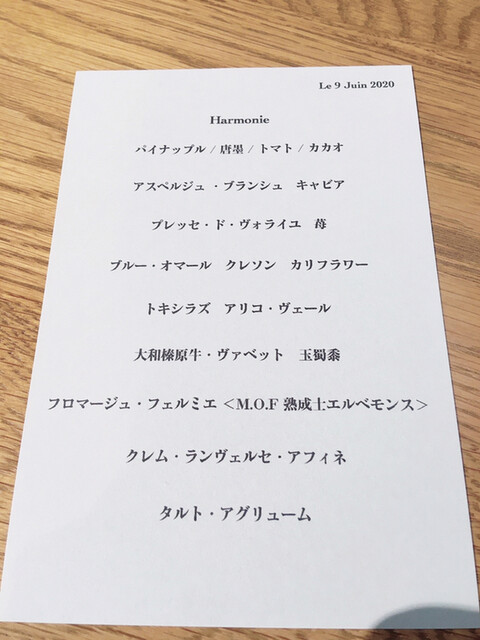 Le 9 Juin 2020
Harmonie
パイナップル / 唐墨 / トマト / カカオ
アスペルジュ・ブランシュ　キャビア
プレッセ・ド・ヴォライユ　苺
ブルー・オマール　クレソン　カリフラワー
トキシラズ　アリコ・ヴェール
大和榛原牛・ヴァベット　玉蜀黍
フロマージュ・フェルミエ ＜M.O.F 熟成士エルベモンス＞
クレム・ランヴェルセ・アフィネ
タルト・アグリューム